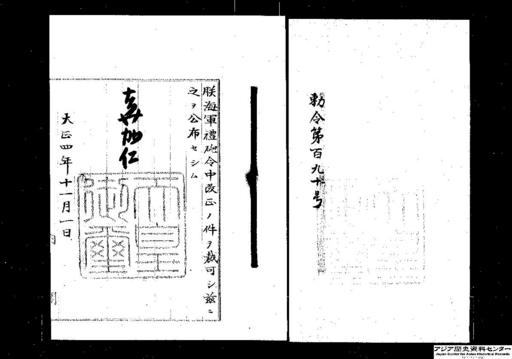 勅令第百九十号
朕海軍禮砲令中改正ノ件ヲ裁可シ玆ニ
之ヲ公布セシム
嘉仁
天皇御璽
大正四年十一月一日
内閣
アジア歴史資料センター
Japan Center for Asian Historical Records